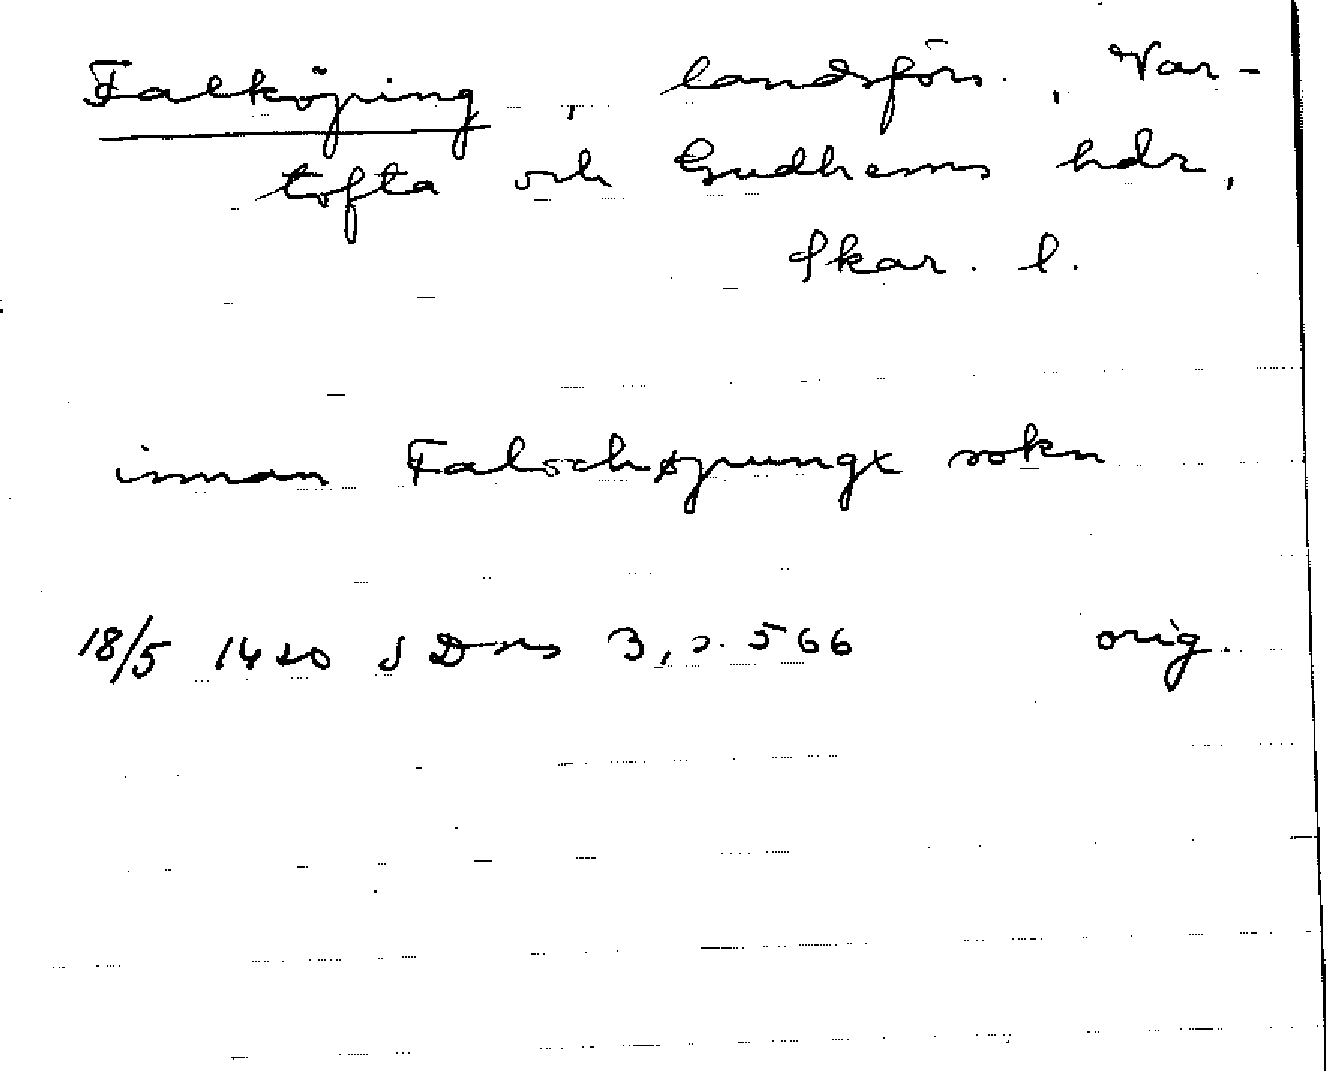 Falköping , landsförs. , Var-
tofta och Gudhems hdr,
Skar. l.
innan Falochøpungx sokn
18/5 1420 SDns 3, s. 566 orig.